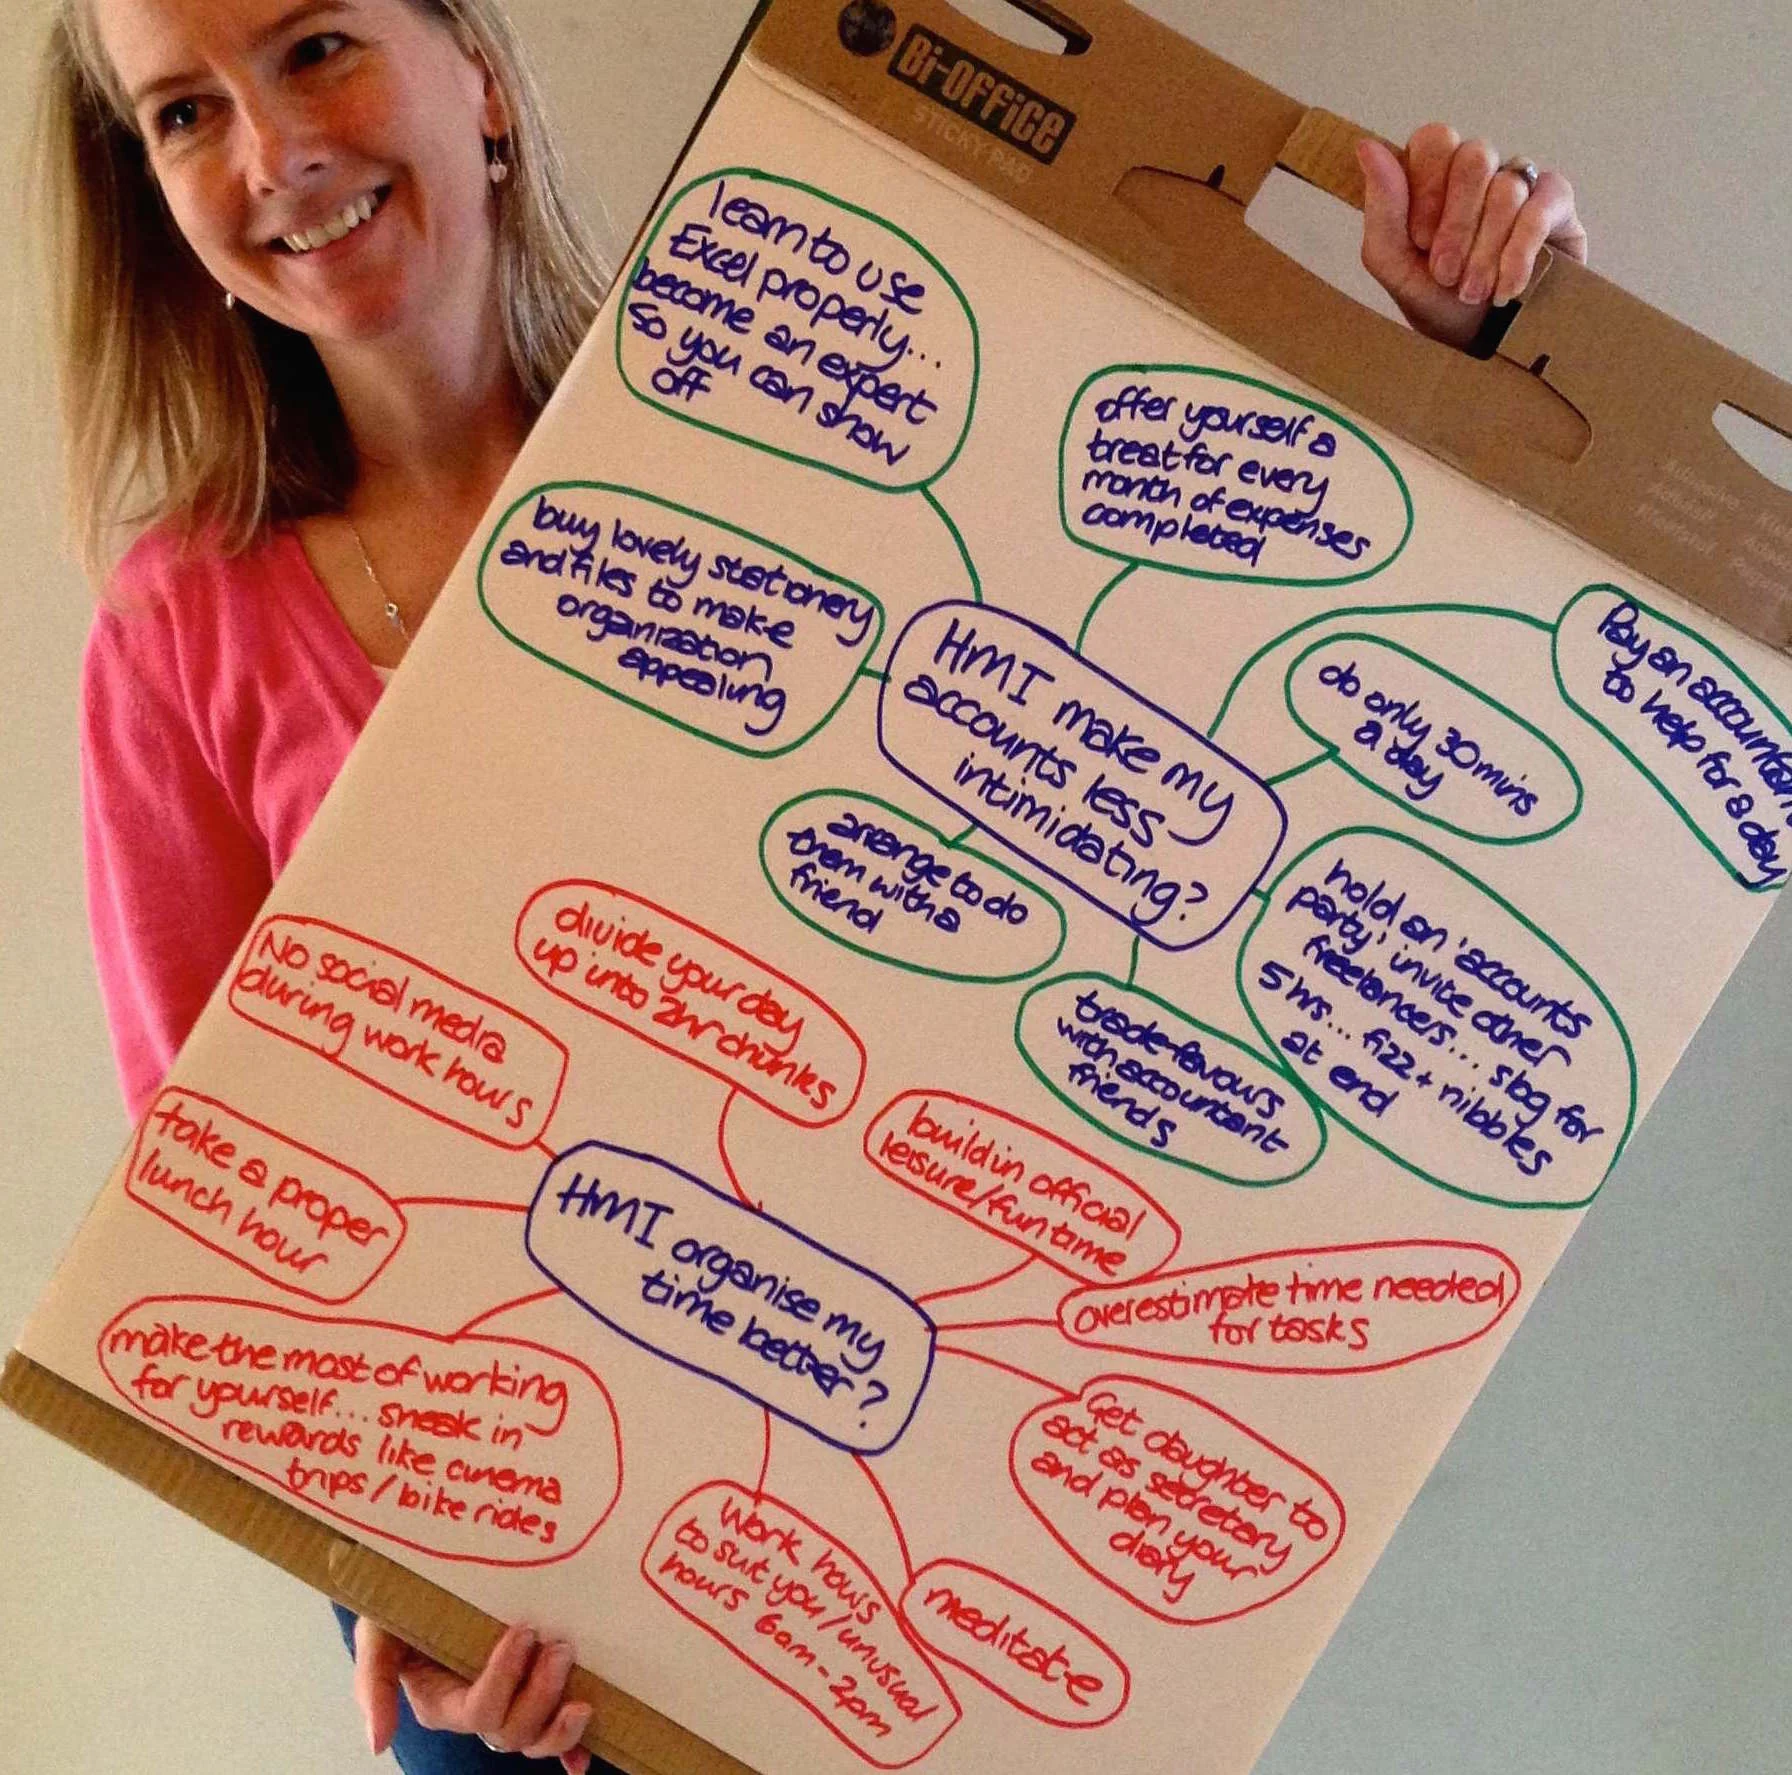 Bi-OFFiCE
STICKY PAD
learn to use
Excel properly...
become an expert
so you can show
off
offer yourself a
treat for every
month of expenses
completed
buy lovely stationery
and files to make
organization
appealing
HMI make my
accounts less
intimidating?
do only 30mins
a day
Pay an accountant
to help for a day
arrange to do
them with a
friend
hold an 'accounts
party' invite other
freelancers... slog for
5 hrs... fizz + nibbles
at end
trade favours
with accountant
friends
divide your day
up into 2hr chunks
No social media
during work hours
build in official
leisure/fun time
take a proper
lunch hour
HMI organise my
time better?
overestimate time needed
for tasks
make the most of working
for yourself... sneak in
rewards like cinema
trips / bike rides
Get daughter to
act as secretary
and plan your
diary
Work hours
to suit you/unusual
hours 6am - 2pm
meditate